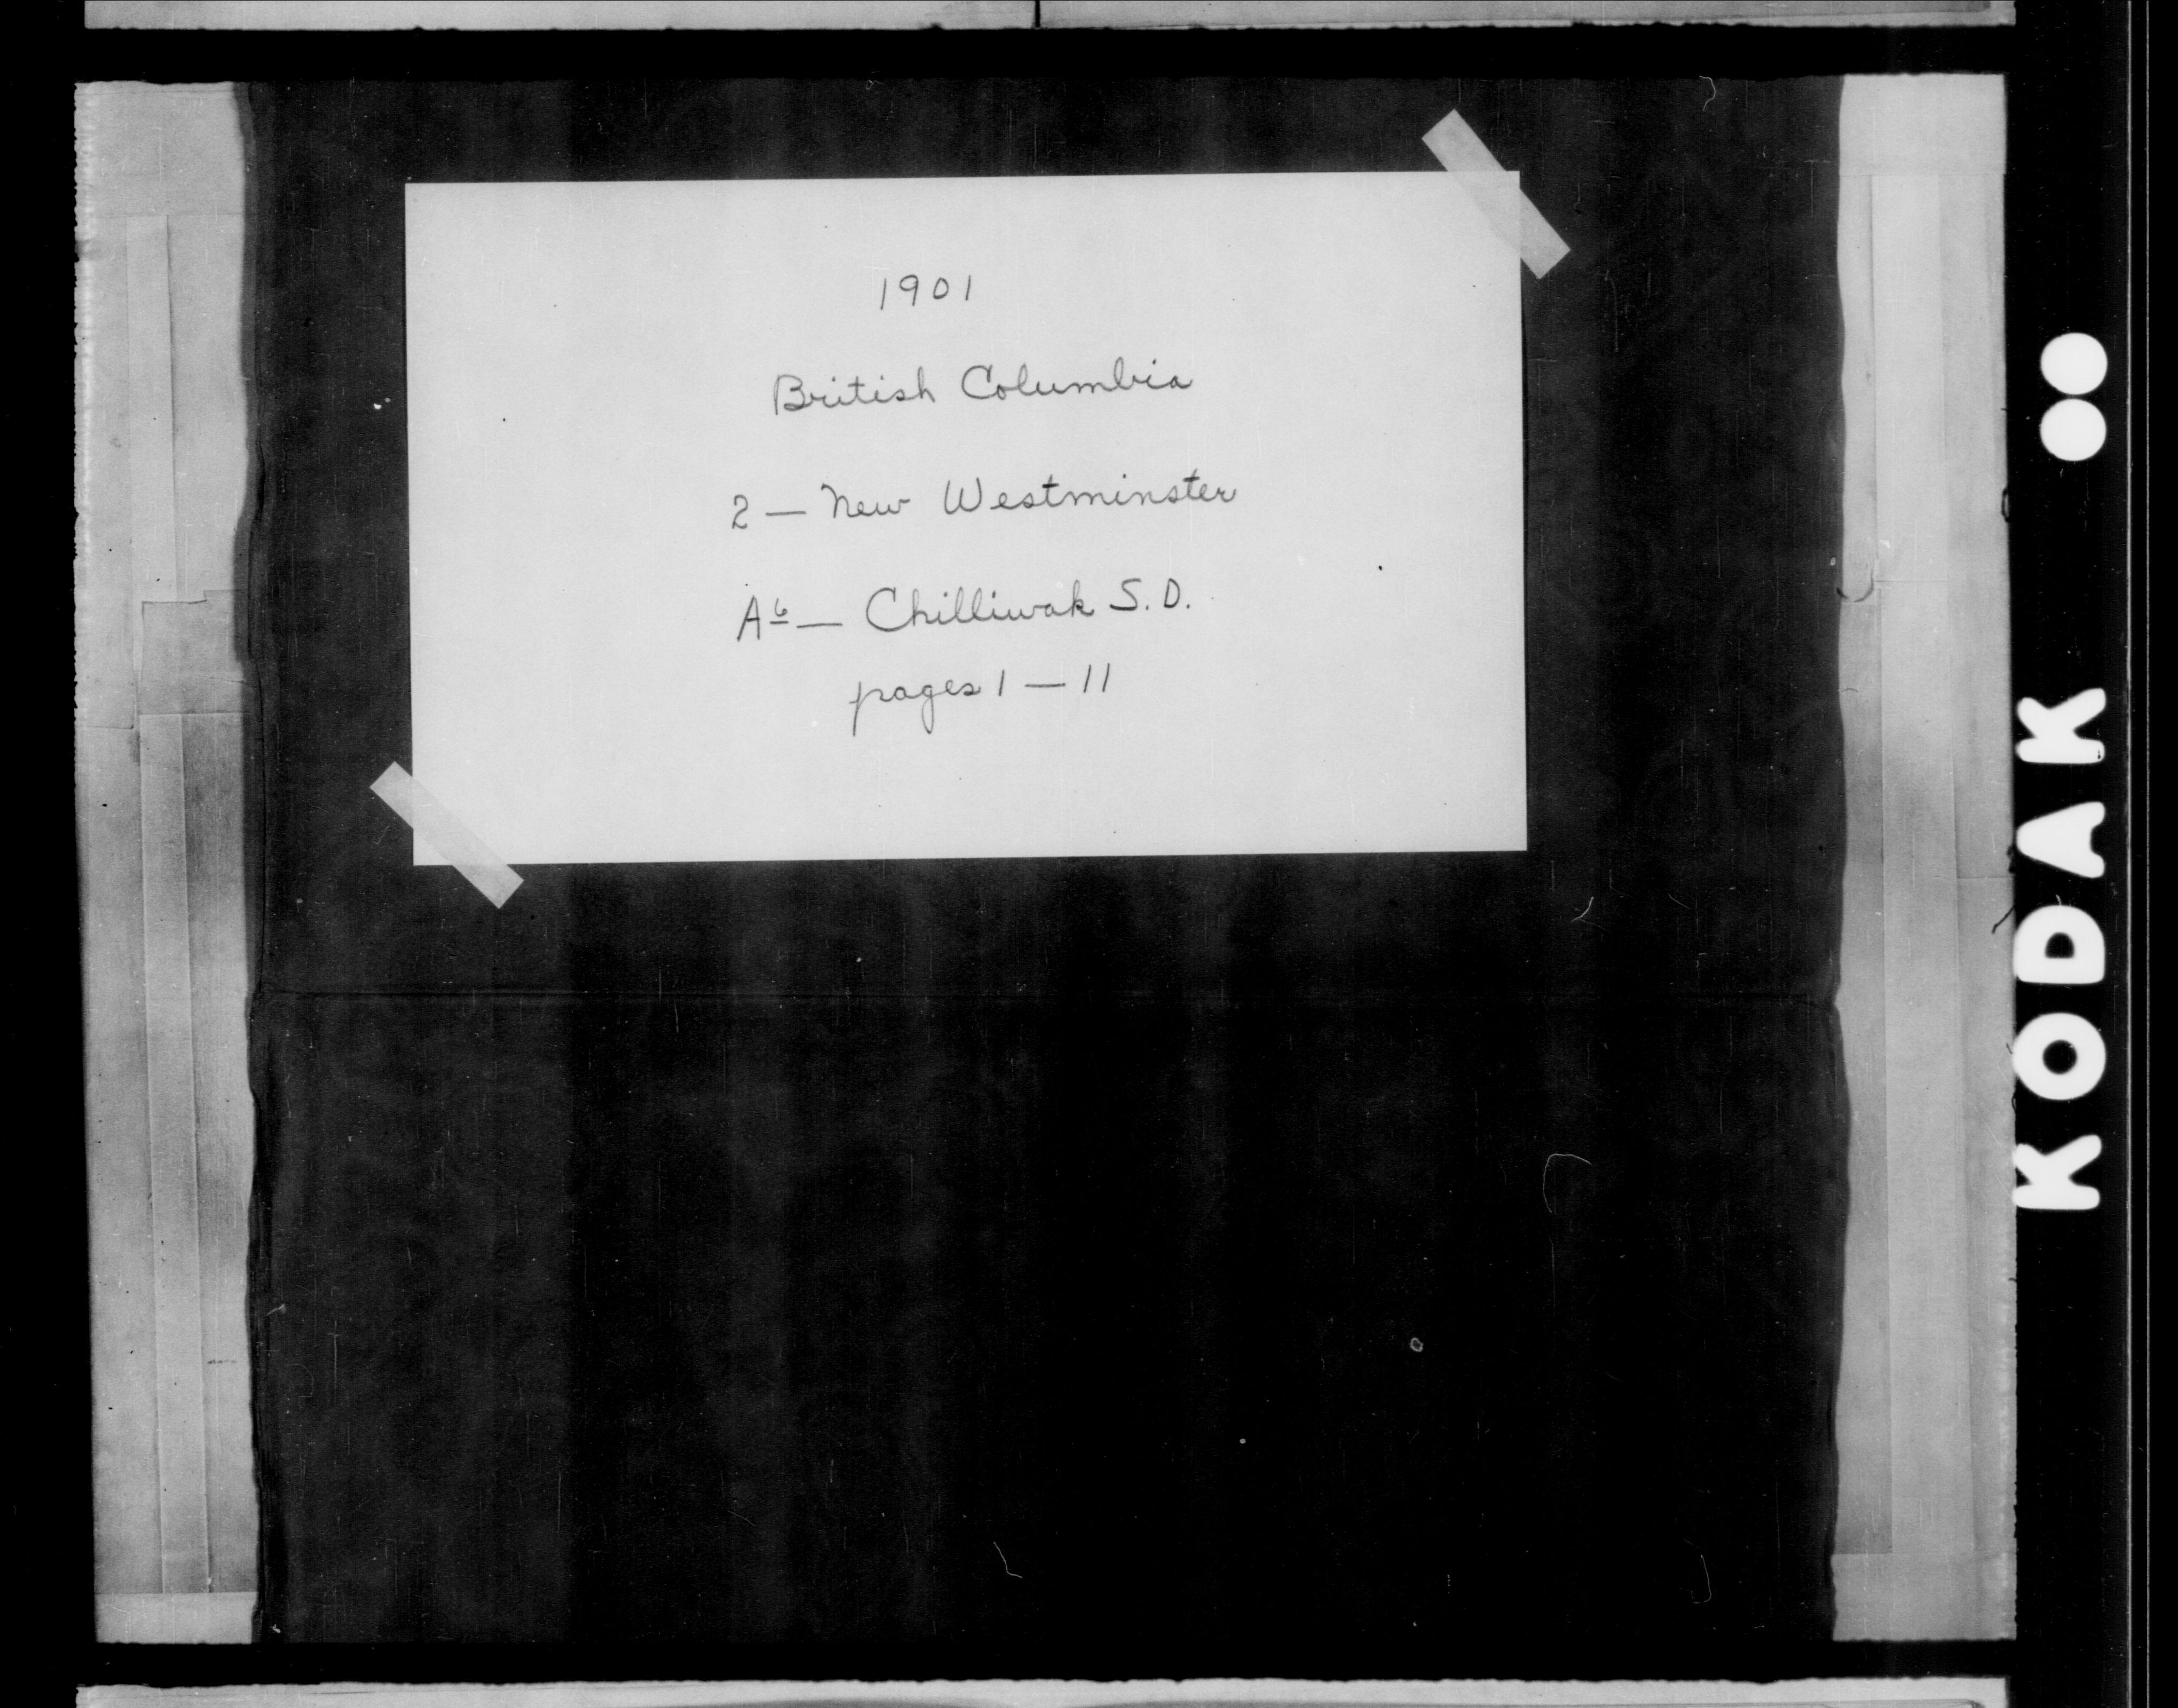 1901
British Columbia
2 — New Westminster
A⁶ — Chilliwak S.D.
pages 1 — 11
KODAK